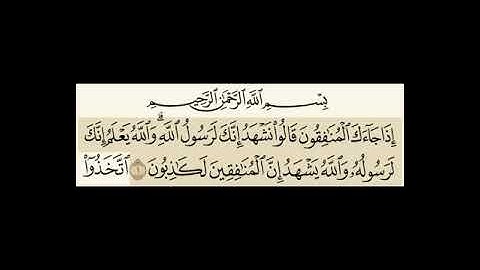 بِسْمِ ٱللَّهِ ٱلرَّحْمَٰنِ ٱلرَّحِيمِ
إِذَا جَآءَكَ ٱلْمُنَٰفِقُونَ قَالُوا۟ نَشْهَدُ إِنَّكَ لَرَسُولُ ٱللَّهِ ۗ وَٱللَّهُ يَعْلَمُ إِنَّكَ
لَرَسُولُهُۥ وَٱللَّهُ يَشْهَدُ إِنَّ ٱلْمُنَٰفِقِينَ لَكَٰذِبُونَ ١ ٱتَّخَذُوٓا۟